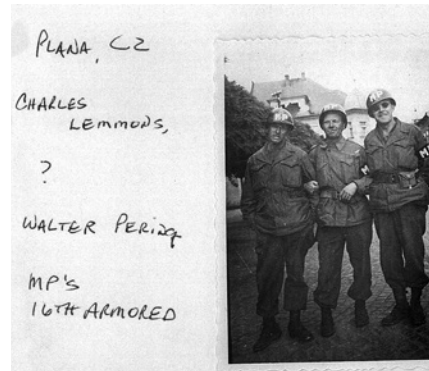 PLANA, CZ
CHARLES
LEMMONS,
?
WALTER
MP'S
16TH ARMORED
MP